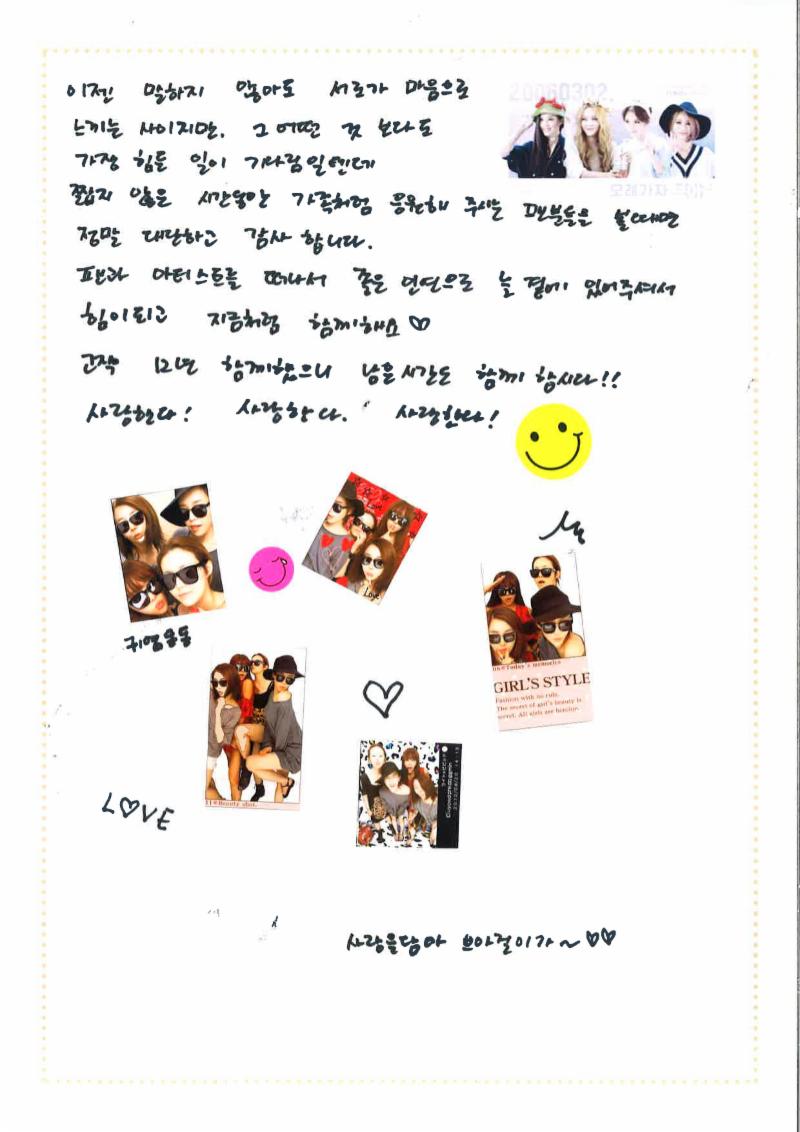 20060302
모래가자
이젠 말하지 않아도 서로가 마음으로
느끼는 사이지만, 그 어떤 것 보다도
가장 힘든 일이 기다림일텐데
짧지 않은 시간동안 가족처럼 응원해 주시는 팬분들을 볼때면
정말 대단하고 감사 합니다.
팬과 아티스트를 떠나서 좋은 인연으로 늘 곁에 있어주셔서
힘이되고 지금처럼 함께해요♡
고작 12년 함께했으니 남은시간도 함께 합시다!!
사랑한다! 사랑한다. 사랑한다!
Love
Love
귀염융동
Today's memories
GIRL'S STYLE
Fashion with no rule.
The secret of girl's beauty is
secret. All girls are heroine.
Beauty shot.
L♡VE
사랑을담아 브아걸이가~♡♡